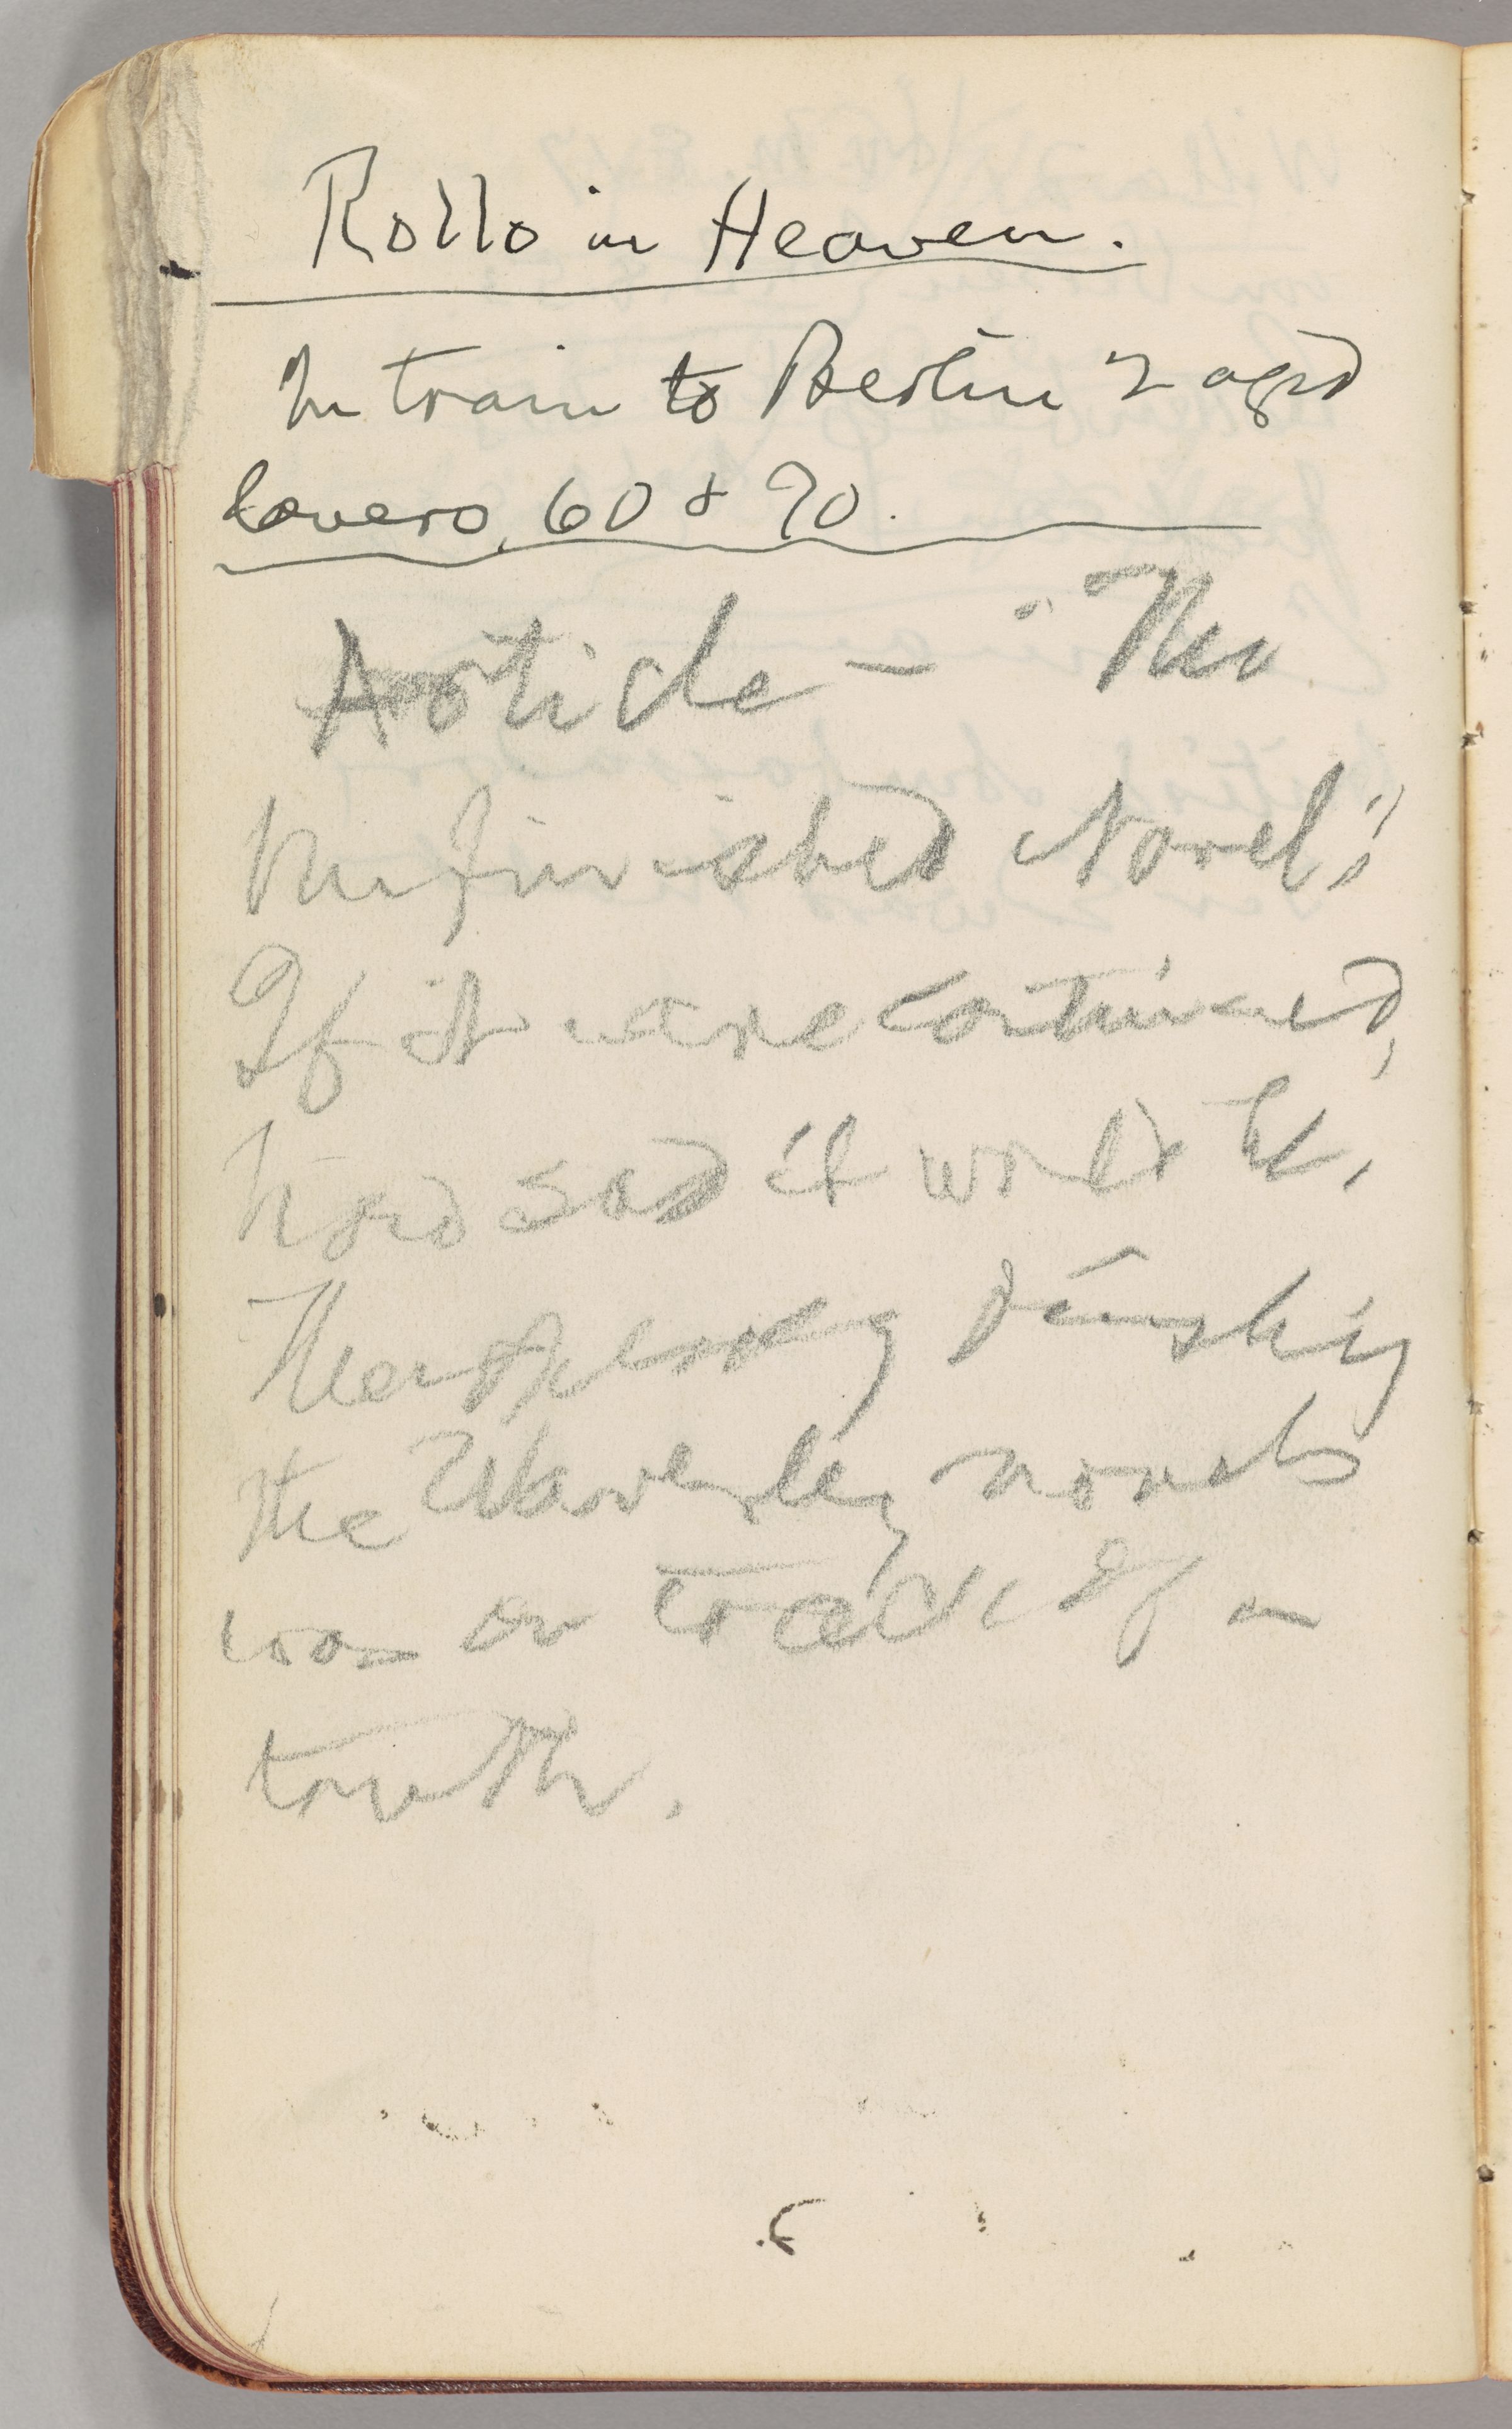 Rollo in Heaven.
In train to Berlin 2 aged
lovers, 60 & 70.
Article — "The
Unfinished Novel";
If it were continued,
how sad it would be,
Thackeray finishing
the Waverley novels
was on track of a
truth.